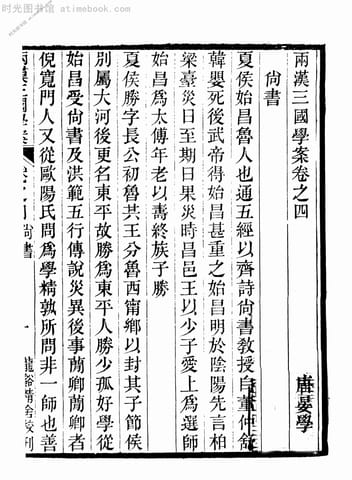 时光图书馆 - atimebook.com
兩漢三國學案卷之四
唐晏學
尚書
夏侯始昌魯人也通五經以齊詩尚書教授自董仲舒
韓嬰死後武帝得始昌甚重之始昌明於陰陽先言柏
梁臺災日至期日果災時昌邑王以少子愛上爲選師
始昌爲太傅年老以壽終族子勝
夏侯勝字長公初魯共王分魯西甯鄉以封其子節侯
別屬大河後更名東平故勝爲東平人勝少孤好學從
始昌受尚書及洪範五行傳說災異後事蕳卿蕳卿者
倪寬門人又從歐陽氏問爲學精孰所問非一師也善
兩漢三國學案 卷之四尚書 一 龍谿精舍校刊